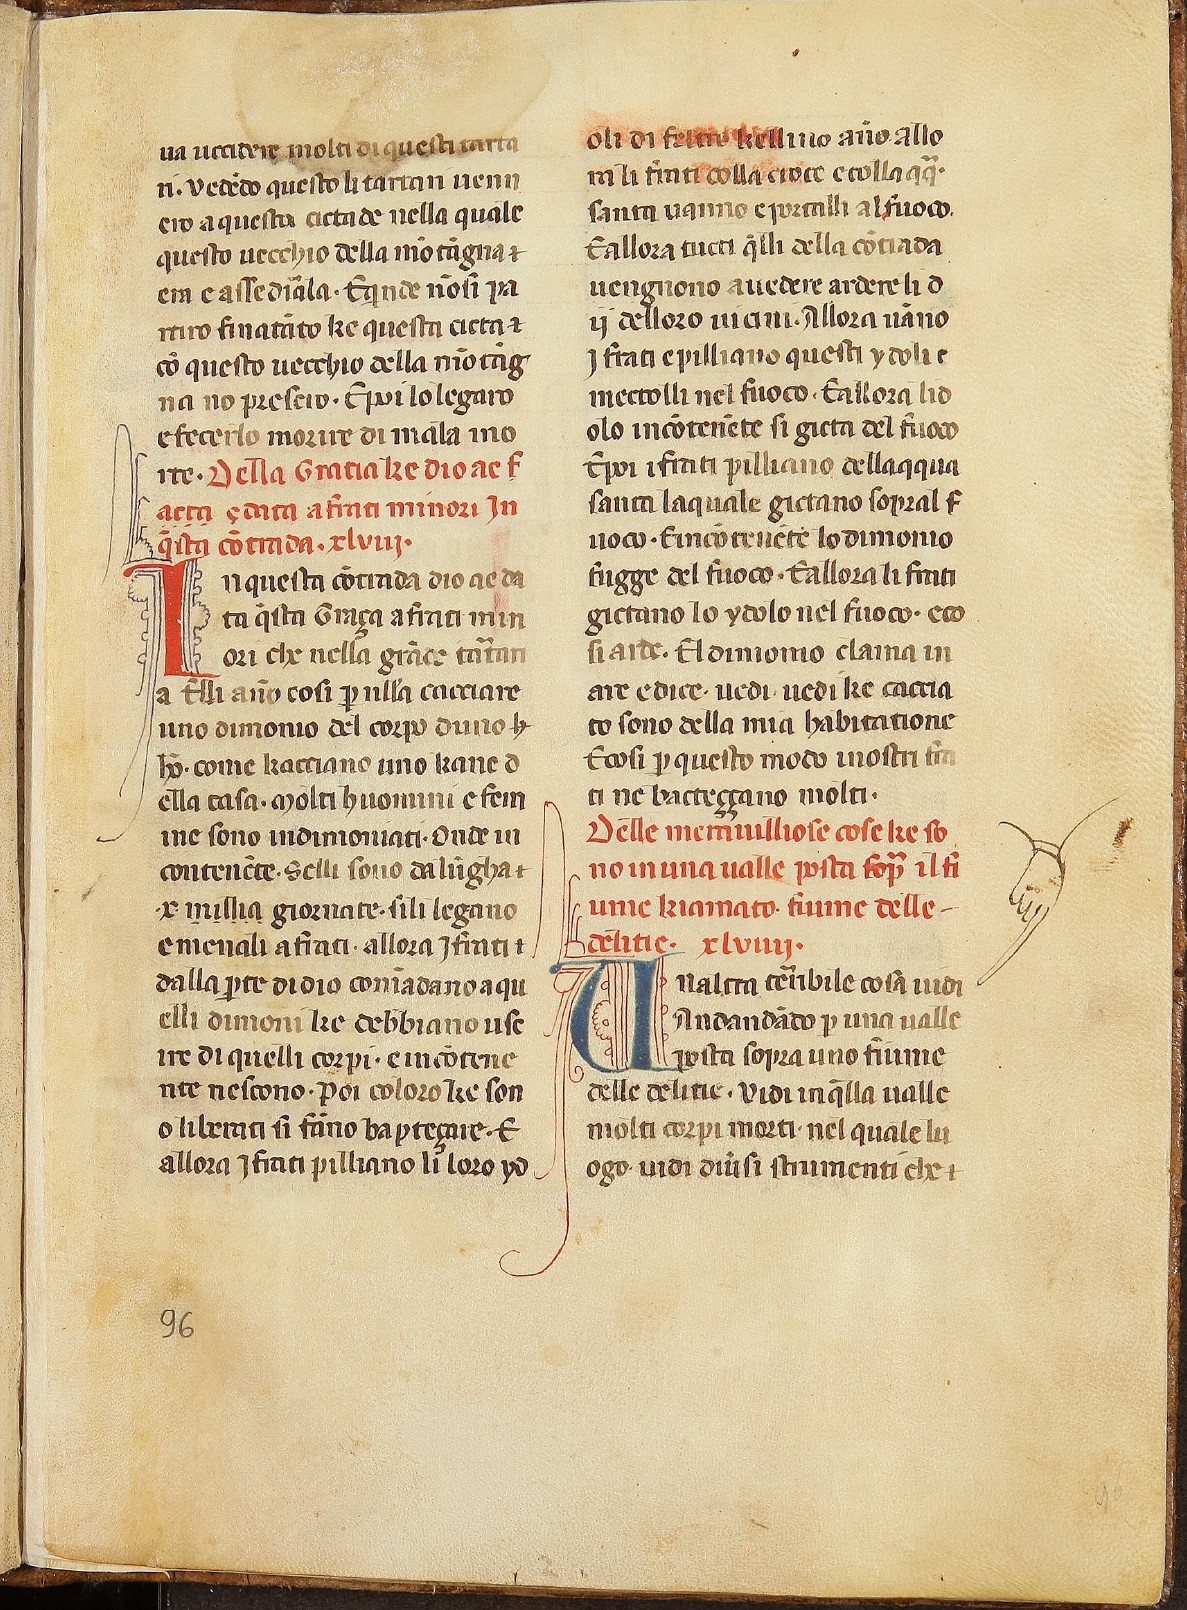 ua uccidere molti di questi tarta
ri. Vedẽdo questo li tartari uenn
ero a questa cictade nella quale
questo uecchio della mõtãgna
era e assediãla. Eqnde nõsi pa
rtiro finatãto ke questa cicta
cõ questo uecchio della mõtãg
na no presero. Epoi lo legaro
e fecerlo morire di mala mo
rte. Della Gratia ke dio ae f
acta ⁊ data a frati minori In
q̃sta cõtrada. xlviij.
In questa cõtrada dio ae da
ta q̃sta Graça a frati min
ori che nella grãde tãtari
a Elli ãno cosi p̱ nulla cacciare
uno dimonio del corpo duno h
hõ. come kacciano uno kane d
ella casa. Molti huomini e fem
ine sono indimoniati. Onde in
contenẽte. Selli sono da lũgha
.x. millia giornate. sili legano
e menali a frati. allora J frati
dalla p̱te di dio comãdano a qu
elli dimoni ke debbiano usc
ire di quelli corpi. e incõtene
nte nescono. Poi coloro ke son
o liberati si fãno bapteçare. E
allora J frati pilliano li loro yd
oli di feltro kellino ãno Allo
ra li frati colla croce e colla aq̃
santa uanno e portalli al fuoco.
Eallora tucti q̃lli della cõtrada
uengnono a uedere ardere li d
ij delloro uicini. Allora uãno
J frati e pilliano questi ydoli e
mectolli nel fuoco. Eallora lid
olo incõtenẽte si gicta del fuoco
Epoi i frati pilliano dellaqqua
santa laquale gictano sopral f
uoco. Eincõtenẽte lo dimonio
fugge del fuoco. Eallora li frati
gictano lo ydolo nel fuoco. eco
si arde. El dimonio clama in
are e dice. uedi uedi ke caccia
to sono della mia habitatione
Ecosi p̱ questo modo inostri fra
ti ne bacteggano molti.
Delle merauilliose cose ke so
no in una ualle posta sop̱ il fi
ume kiamato. fiume delle –
delitie. xlviiij.
Unaltra terribile cosa uidi
Andandãdo p̱ una ualle
posta sopra uno fiume
delle delitie. Vidi in q̃lla ualle
molti corpi morti. nel quale lu
ogo. uidi diũsi strumenti che
96